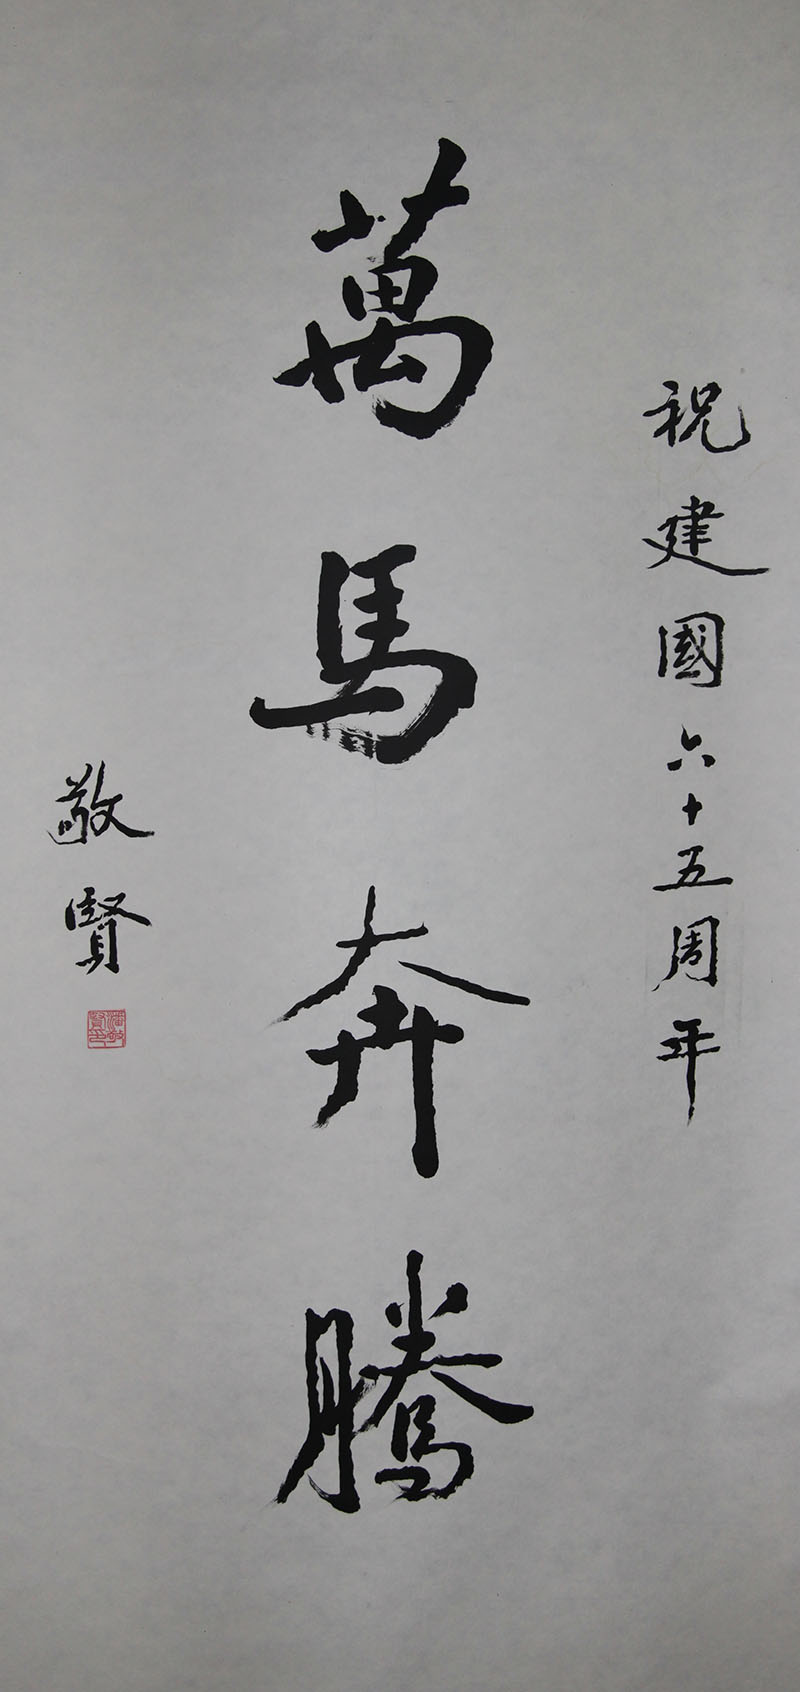 祝建國六十五周年
萬馬奔騰
敬賢